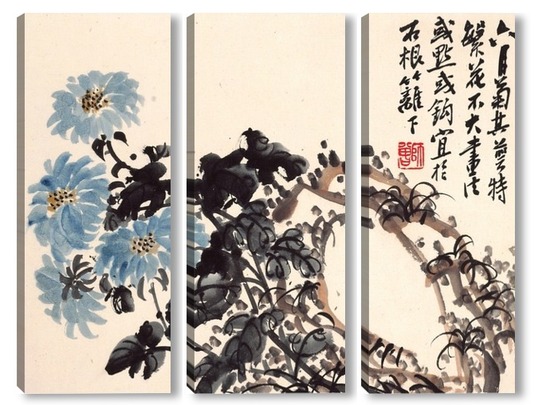 六月菊其葉特
繁花不大畫法
或點或鈎宜於
石根籬下
師曾